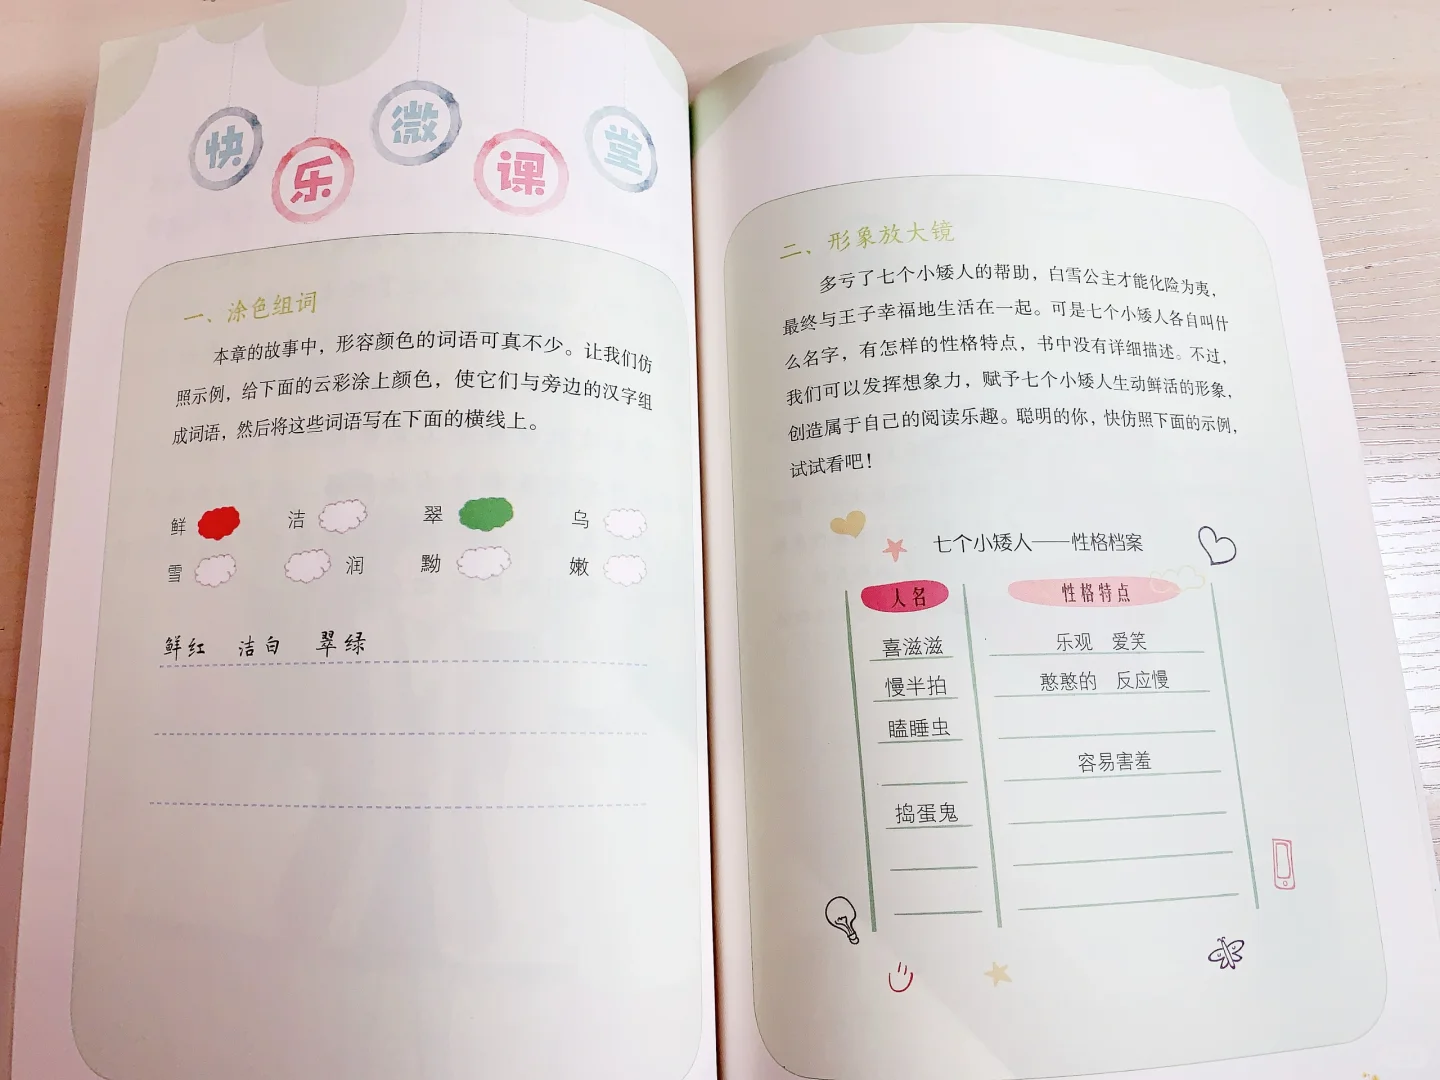 快乐微课堂
一、涂色组词
本章的故事中，形容颜色的词语可真不少。让我们仿
照示例，给下面的云彩涂上颜色，使它们与旁边的汉字组
成词语，然后将这些词语写在下面的横线上。
鲜 洁 翠 乌
雪 润 黝 嫩
鲜红 洁白 翠绿
二、形象放大镜
多亏了七个小矮人的帮助，白雪公主才能化险为夷，
最终与王子幸福地生活在一起。可是七个小矮人各自叫什
么名字，有怎样的性格特点，书中没有详细描述。不过，
我们可以发挥想象力，赋予七个小矮人生动鲜活的形象，
创造属于自己的阅读乐趣。聪明的你，快仿照下面的示例，
试试看吧！
七个小矮人——性格档案
人名 性格特点
喜滋滋 乐观 爱笑
慢半拍 憨憨的 反应慢
瞌睡虫
容易害羞
捣蛋鬼